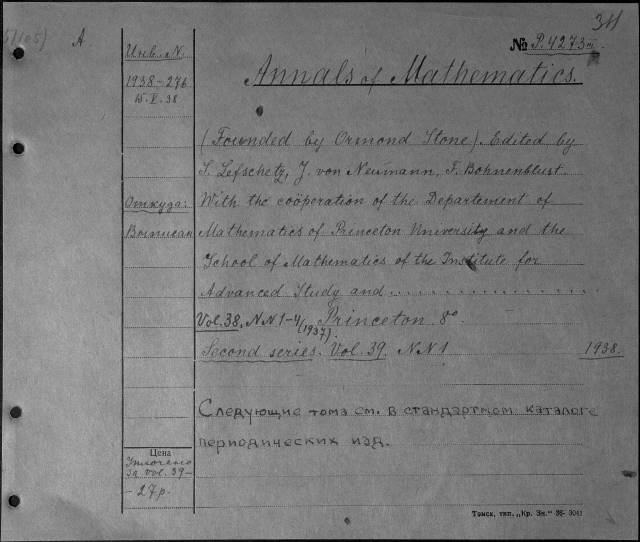 31
5(105) A
№ P.4273 III.
Annals of Mathematics.
Инв. N.
1938-276
15.V.38
(Founded by Ormond Stone). Edited by
S. Lefschetz, J. von Neumann, F. Bohnenblust.
Откуда:
With the coöperation of the Departement of
Выписан
Mathematics of Princeton University and the
School of Mathematics of the Institute for
Advanced Study and ....................
Vol. 38, NN 1-4 (1937). Princeton. 8°
Second series. Vol. 39. NN 1 1938.
Следующие тома см. в стандартном каталоге
периодических изд.
Цена
Уплочено
за Vol. 39-
-27р.
Томск, тип. „Кр. Зн.“ 36- 3041